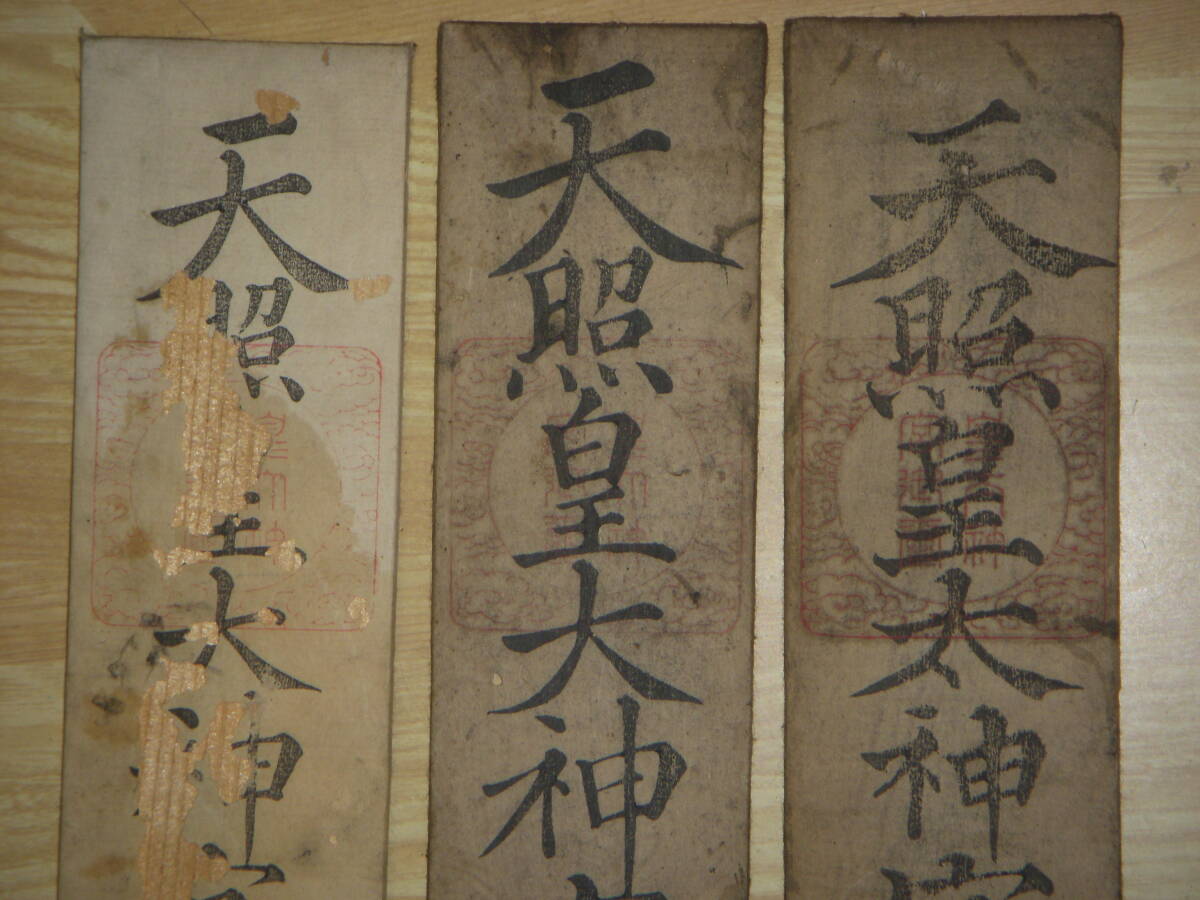 天照皇太神宮
天照皇大神
天照皇大神